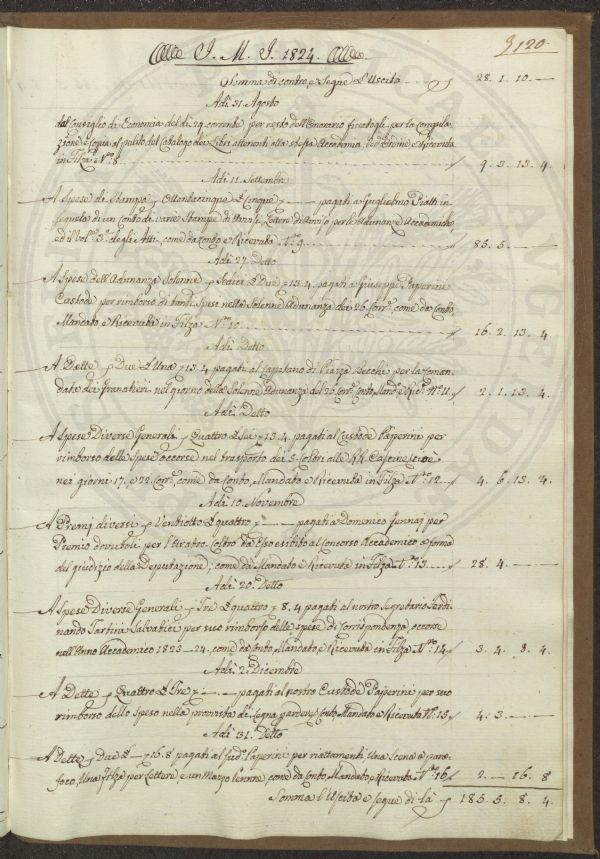 120
I. M. I. 1824.
Somma di contro e Segue l'Uscita 28. 1. 10. —
Adi 31. Agosto
dal Consiglio di Economia del dì 29 corrente per resto dell'Onorario per la compila
zione e copia al pulito del Catalogo dei Libri attenenti alla stessa Accademia, Ordine e Ricevuta
in Filza N.º 8 9. 3. 13. 4.
Adi 11. Settembre
A Spese di Stampa Ottantacinque £ Cinque — pagati a Guglielmo Piatti in
seguito di un conto di varie Stampe di Avvisi, Lettere di Avviso per le Adunanze Accademiche
ed il Vol.e 3.º degli Atti, come da Conto e Ricevuta N.º 9 85. 5. —
Adi 27. Detto
A Spese dell'Adunanza Solenne Sedici £ Due 13. 4. pagati a Giuseppe Paperini
Custode per rimborso di tante Spese nella Solenne Adunanza dei 26 Corr.e come da Conto,
Mandato e Ricevuta in Filza N.º 10 16. 2. 13. 4.
Adi Detto
A Dette Due £ Una 13. 4 pagati al Capitano di Piazza Becchi per la coman
data dei Granatieri nel giorno della Solenne Adunanza del 26 Corr.e Conto, Mand.o e Ric.a N.º 11. 2. 1. 13. 4.
Adi Detto
A Spese Diverse Generali Quattro £ Sei 13. 4. pagati al Custode Paperini per
rimborso delle Spese occorse nel trasporto dei 5. Coltri alle RR. Cascine
nei giorni 17. e 22. Corr.e come da Conto, Mandato e Ricevuta in Filza N.º 12 4. 6. 13. 4.
Adi 10. Novembre
A Premj diversi Ventotto £ quattro — pagati a Domenico Gennaj per
Premio dovutoli per l'Aratro Coltro da Esso esibito al Concorso Accademico a forma
del giudizio della Deputazione, come da Mandato e Ricevuta in Filza N.º 13 28. 4. —
Adi 20. Detto
A Spese Diverse Generali Tre £ quattro 8. 4 pagati al nostro Segretario Ferdi
nando Tartini Salvatici per suo rimborso delle spese di Corrispondenza occorse
nell'Anno Accademico 1823—24. come da Conto, Mandato e Ricevuta in Filza N.º 14 3. 4. 8. 4
Adi 2. Dicembre
A Dette Quattro £ Tre — pagati al nostro Custode Paperini per suo
rimborso dello speso nella provvista di Legna, Conto, Mandato e Ricevuta N.º 15 4. 3. —
Adi 31. Detto
A Dette Due £ — 16. 8 pagati al sud.o Paperini per riattamenti Una Scena a para
foco, Una Filza per Lettere e un Mazzo Penne come da Conto, Mandato e Ricevuta N.º 16 2. — 16. 8
Somma l'Uscita e segue di là 185. 5. 8. 4.